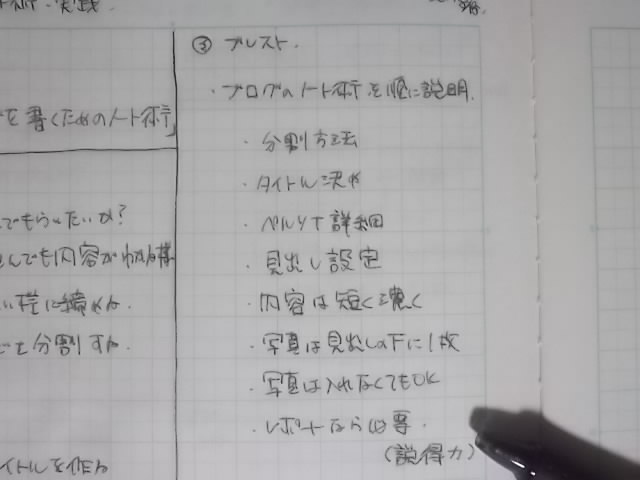 術・実践
③ ブレスト.
・ブログのノート術を順に説明.
・分割方法
・タイトル決め
・ペルソナ詳細
・見出し設定
・内容は短く濃く
・写真は見出しの下に1枚
・写真は入れなくてもOK
・レポートなら必要.
(説得力)
を書くためのノート術」
でもらいたいか?
んでも内容がわかる様
い様に続ける.
ごと分割する.
イトルを作る